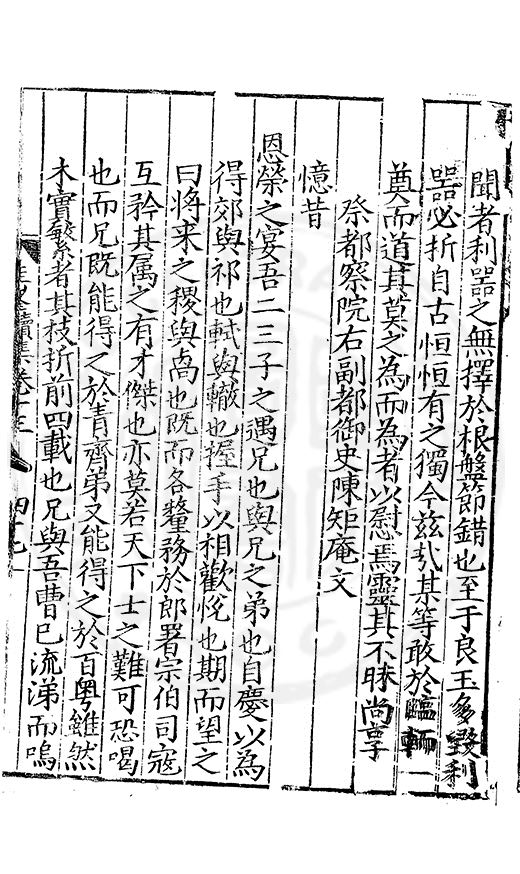 聞者利器之無擇於根盤節錯也至于良玉多毀利
器必折自古恒恒有之獨今茲哉某等敢於臨輀一
奠而道其莫之為而為者以慰焉靈其不昧尚享
祭都察院右副都御史陳矩庵文
憶昔
恩榮之宴吾二三子之遇兄也與兄之弟也自慶以為
得郊與祁也軾與轍也握手以相歡悅也期而望之
曰將来之稷與卨也既而各釐務於郎署宗伯司寇
互矜其属之有才傑也亦莫若天下士之難可恐喝
也而兄既能得之於青齊弟又能得之於百粵雖然
木實繁者其枝折前四載也兄與吾曹已流涕而嗚
續集卷十三
四十七